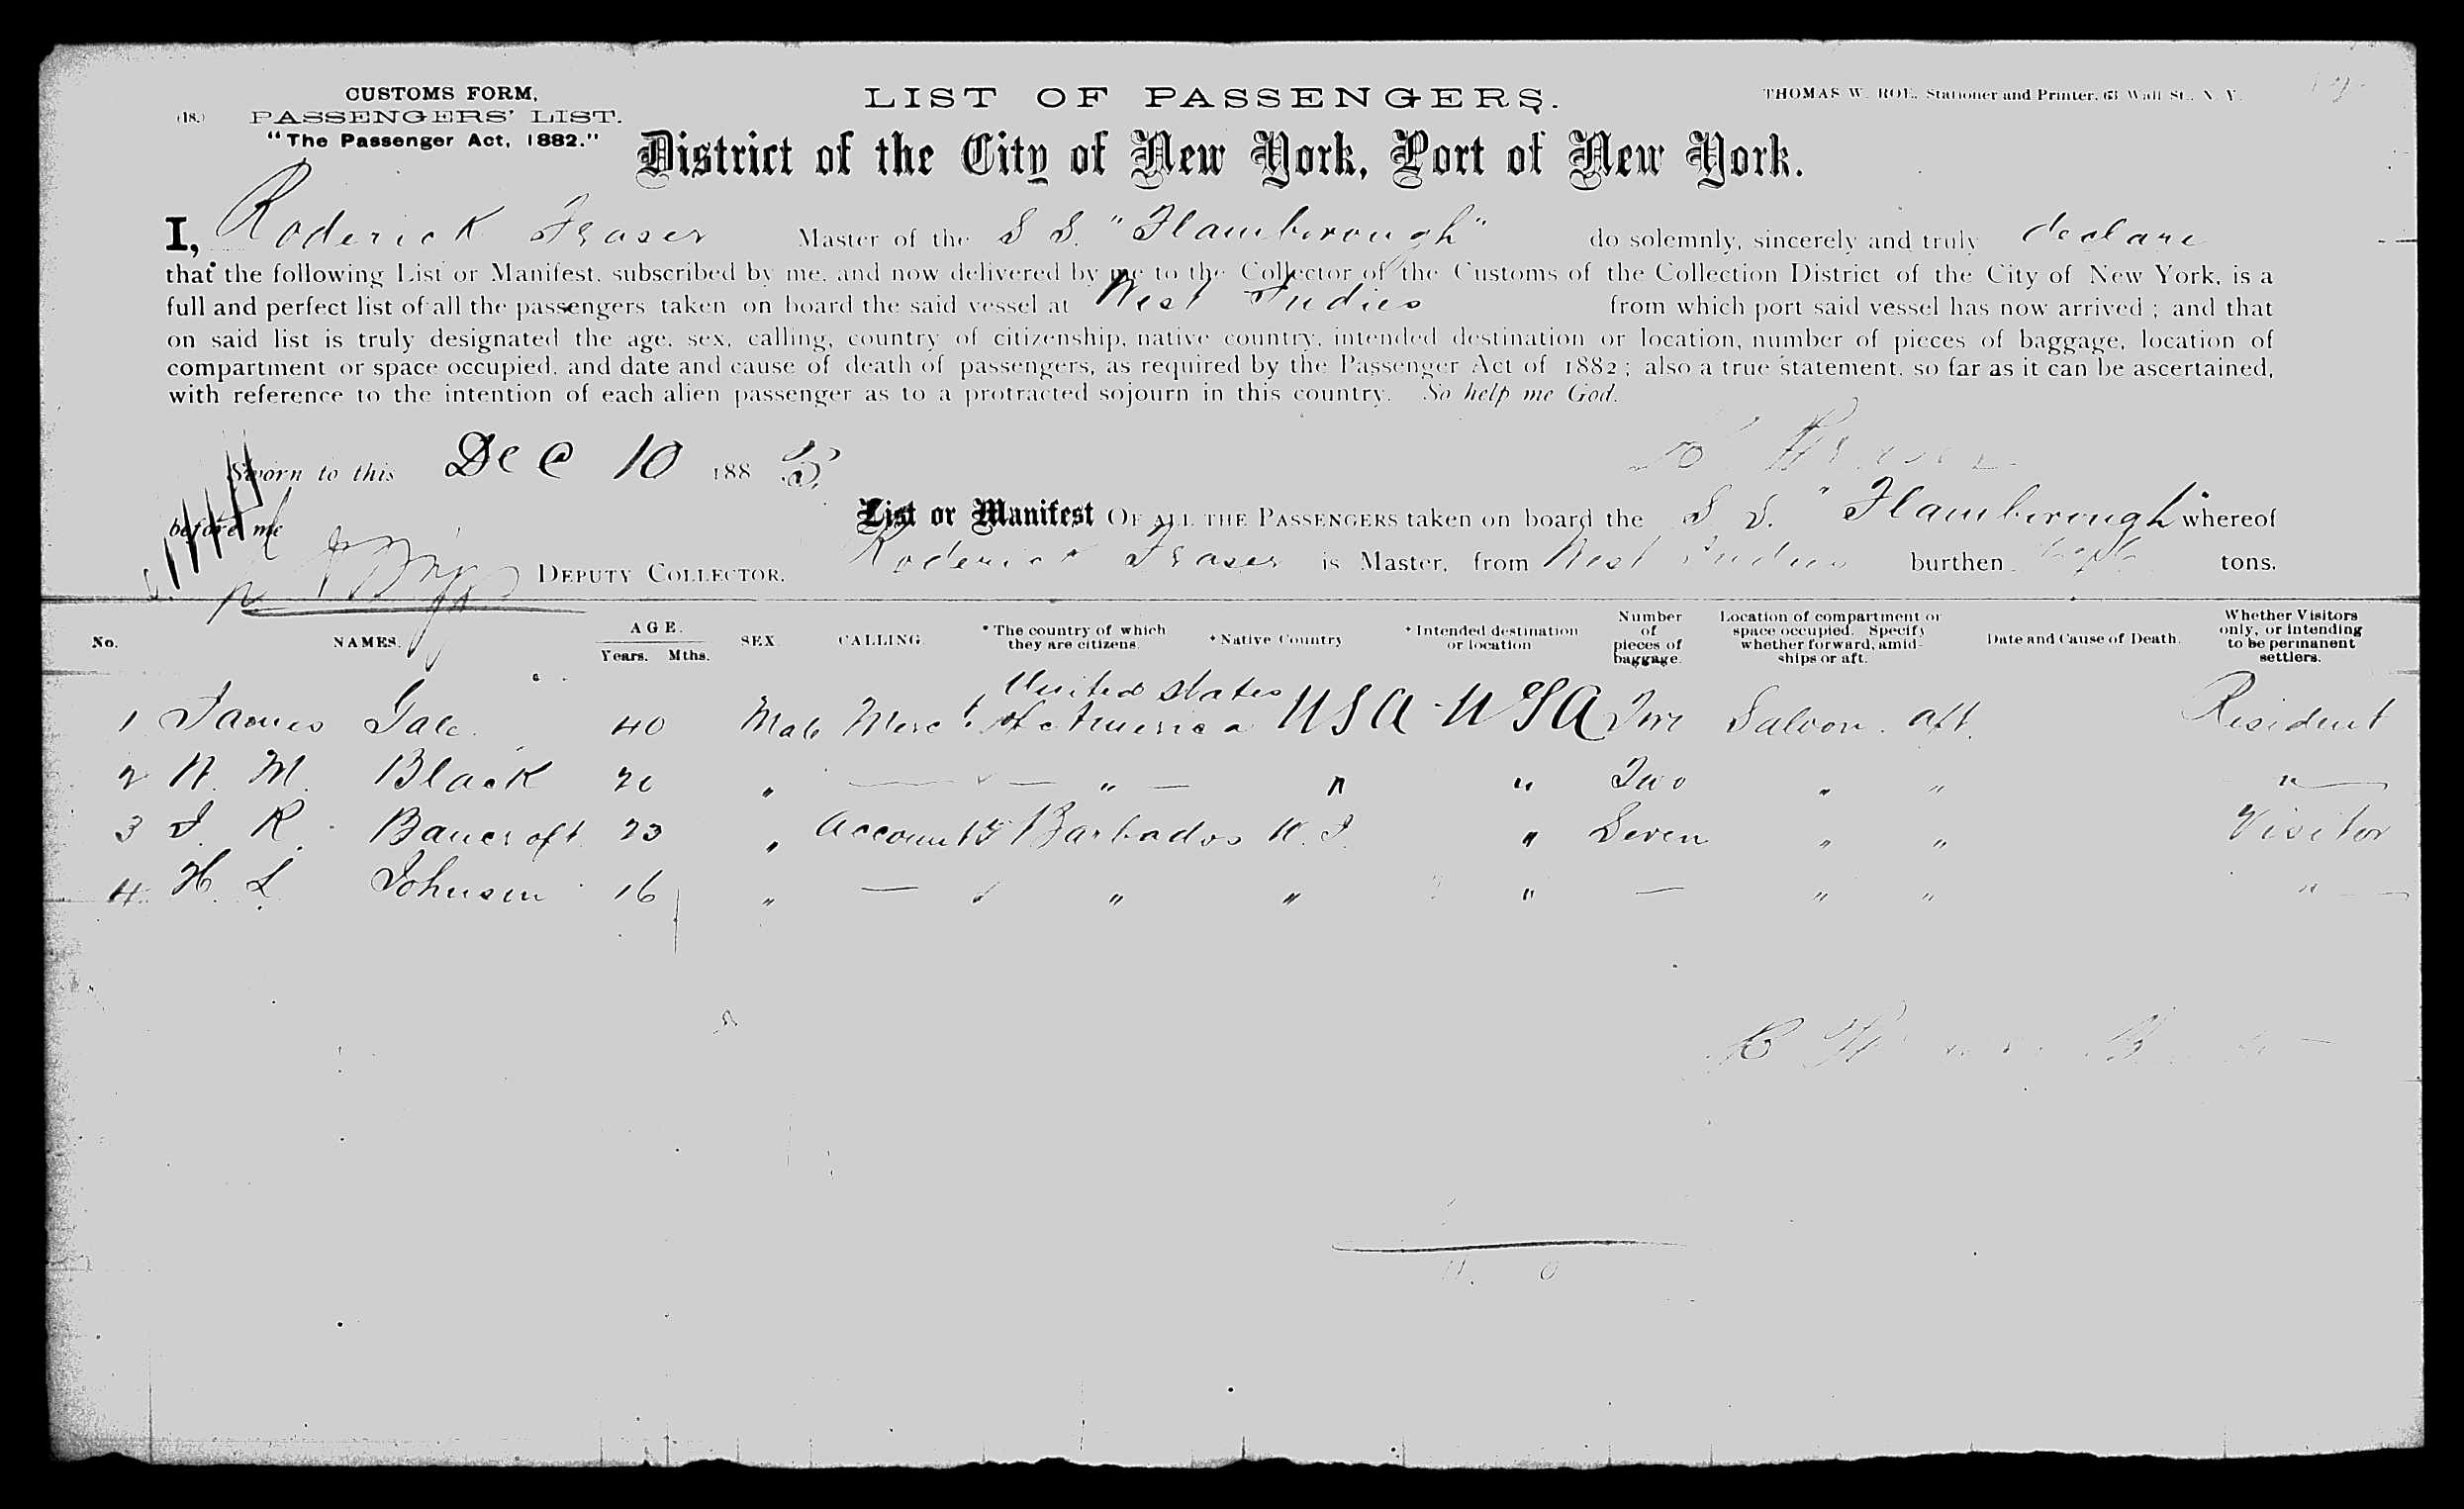 CUSTOMS FORM,
(18.) PASSENGERS' LIST.
"The Passenger Act, 1882."
LIST OF PASSENGERS.
THOMAS W. ROE, Stationer and Printer, 63 Wall St., N. Y.
District of the City of New York, Port of New York.
I, Roderick Fraser Master of the S S. "Flamborough" do solemnly, sincerely and truly declare
that the following List or Manifest, subscribed by me, and now delivered by me to the Collector of the Customs of the Collection District of the City of New York, is a
full and perfect list of all the passengers taken on board the said vessel at West Indies from which port said vessel has now arrived ; and that
on said list is truly designated the age, sex, calling, country of citizenship, native country, intended destination or location, number of pieces of baggage, location of
compartment or space occupied, and date and cause of death of passengers, as required by the Passenger Act of 1882 ; also a true statement, so far as it can be ascertained,
with reference to the intention of each alien passenger as to a protracted sojourn in this country. So help me God.
Fraser
Sworn to this Dec 10 1885
before me
DEPUTY COLLECTOR.
List or Manifest OF ALL THE PASSENGERS taken on board the S S. "Flamborough" whereof
Roderick Fraser is Master, from West Indies burthen tons.
No. NAMES. AGE. Years. Mths. SEX CALLING. * The country of which they are citizens. * Native Country * Intended destination or location Number of pieces of baggage. Location of compartment or space occupied. Specify whether forward, amidships or aft. Date and Cause of Death. Whether Visitors only, or intending to be permanent settlers.
1 James Gale 40 Male Merct United States of America U S A U S A Two Saloon aft. Resident
2 M. Black " — " — " " Two " " "
3 R. Bancroft 23 " Accountt Barbados W. I. " Seven " " Visitor
4 H. L. Johnson 16 " — " " " — " " "